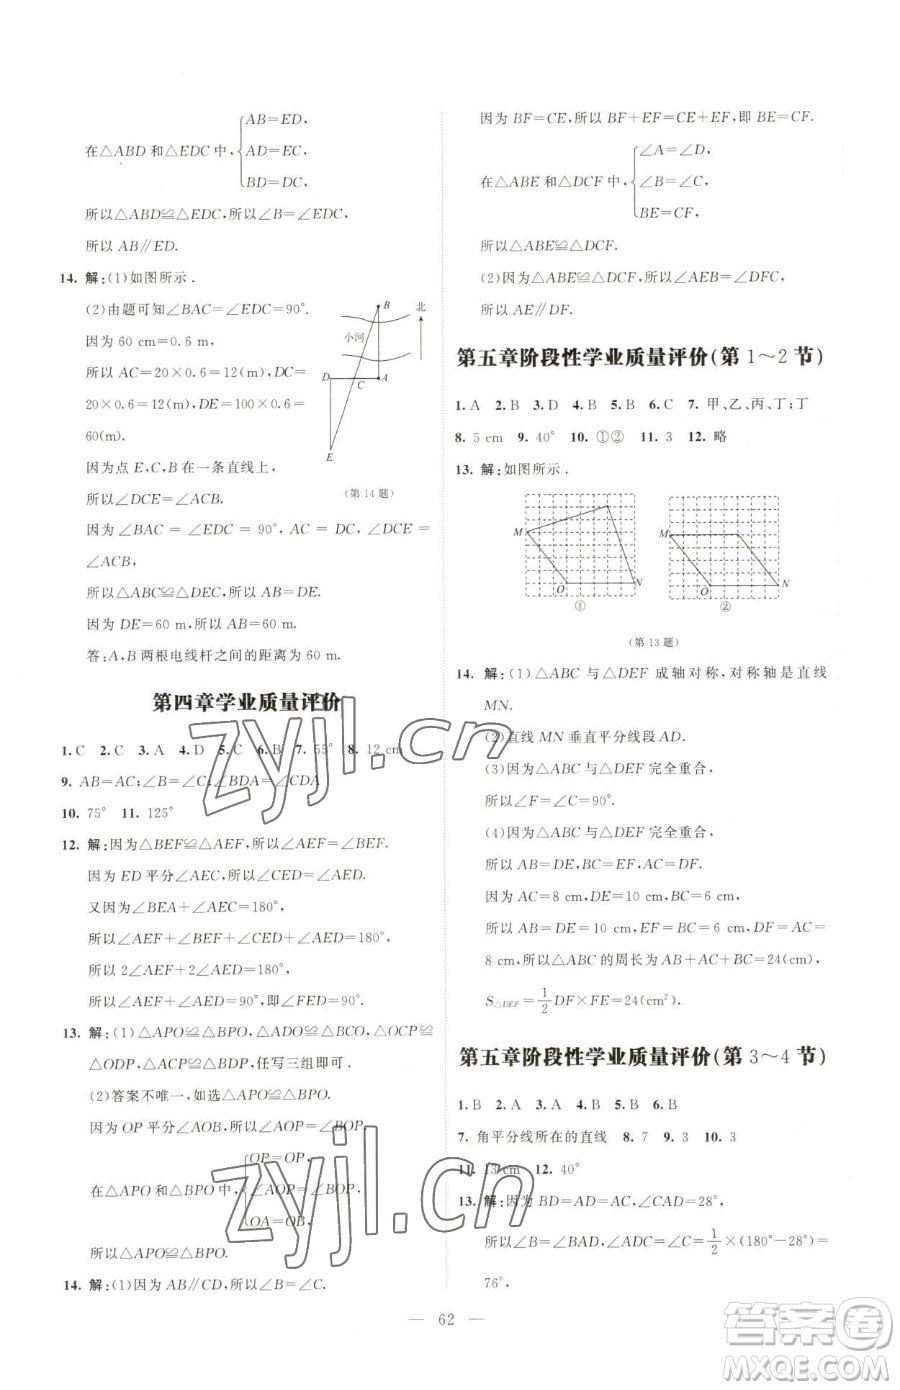 AB=ED,
在△ABD 和△EDC 中, AD=EC,
BD=DC,
所以△ABD≌△EDC,所以∠B=∠EDC,
所以 AB∥ED.
14. 解:(1)如图所示.
(2)由题可知∠BAC=∠EDC=90°.
因为 60 cm=0.6 m,
所以 AC=20×0.6=12(m),DC=
20×0.6=12(m),DE=100×0.6=
60(m).
因为点 E,C,B 在一条直线上,
所以∠DCE=∠ACB.
因为∠BAC = ∠EDC = 90°, AC = DC, ∠DCE =
∠ACB,
所以△ABC≌△DEC,所以 AB=DE.
因为 DE=60 m,所以 AB=60 m.
答:A,B 两根电线杆之间的距离为 60 m.
B 北
小河
D C A
E
(第 14 题)
第四章学业质量评价
1. C 2. C 3. A 4. D 5. C 6. B 7. 55° 8. 12 cm
9. AB=AC;∠B=∠C;∠BDA=∠CDA
10. 75° 11. 125°
12. 解:因为△BEF≌△AEF,所以∠AEF=∠BEF.
因为 ED 平分∠AEC,所以∠CED=∠AED.
又因为∠BEA+∠AEC=180°,
所以∠AEF+∠BEF+∠CED+∠AED=180°,
所以 2∠AEF+2∠AED=180°,
所以∠AEF+∠AED=90°,即∠FED=90°.
13. 解:(1)△APO≌△BPO,△ADO≌△BCO,△OCP≌
△ODP,△ACP≌△BDP,任写三组即可.
(2)答案不唯一,如选△APO≌△BPO.
因为 OP 平分∠AOB,所以∠AOP=∠BOP.
OP=OP,
在△APO 和△BPO 中, ∠AOP=∠BOP,
OA=OB,
所以△APO≌△BPO.
14. 解:(1)因为 AB∥CD,所以∠B=∠C.
因为 BF=CE,所以 BF+EF=CE+EF,即 BE=CF.
∠A=∠D,
在△ABE 和△DCF 中, ∠B=∠C,
BE=CF,
所以△ABE≌△DCF.
(2)因为△ABE≌△DCF,所以∠AEB=∠DFC,
所以 AE∥DF.
第五章阶段性学业质量评价(第 1～2 节)
1. A 2. B 3. D 4. B 5. B 6. C 7. 甲、乙、丙、丁;丁
8. 5 cm 9. 40° 10. ①② 11. 3 12. 略
13. 解:如图所示.
M O N
①
M O N
②
(第 13 题)
14. 解:(1)△ABC 与△DEF 成轴对称,对称轴是直线
MN.
(2)直线 MN 垂直平分线段 AD.
(3)因为△ABC 与△DEF 完全重合,
所以∠F=∠C=90°.
(4)因为△ABC 与△DEF 完全重合,
所以 AB=DE,BC=EF,AC=DF.
因为 AC=8 cm,DE=10 cm,BC=6 cm,
所以 AB=DE=10 cm,EF=BC=6 cm,DF=AC=
8 cm,所以△ABC 的周长为 AB+AC+BC=24(cm),
S△DEF=1/2DF×FE=24(cm²).
第五章阶段性学业质量评价(第 3～4 节)
1. B 2. A 3. A 4. B 5. B 6. B
7. 角平分线所在的直线 8. 7 9. 3 10. 3
11. 13 cm 12. 40°
13. 解:因为 BD=AD=AC,∠CAD=28°,
所以∠B=∠BAD,∠ADC=∠C=1/2×(180°-28°)=
76°,
— 62 —
zyjl.cn
zyjl.cn
答案圈
MXQE.COM